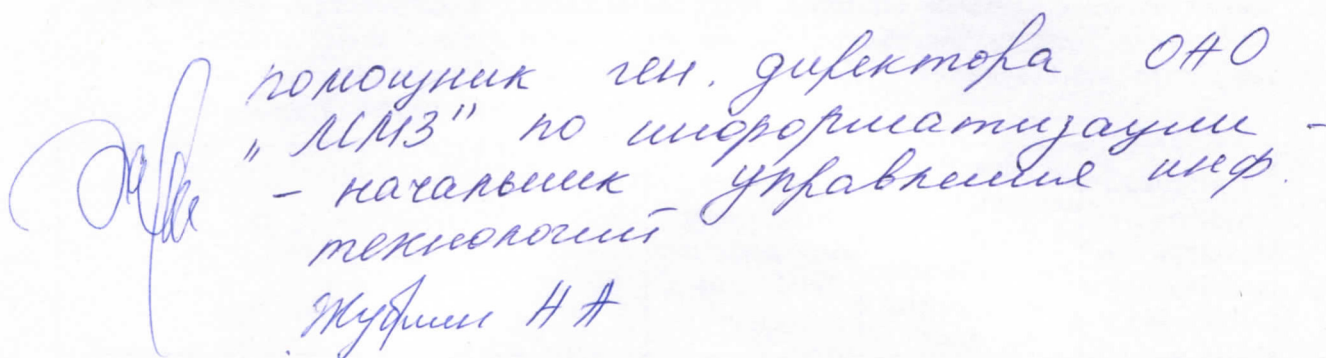 помощник ген. директора ОАО
"ММЗ" по информатизации -
- начальник управления инф.
технологий
Н А